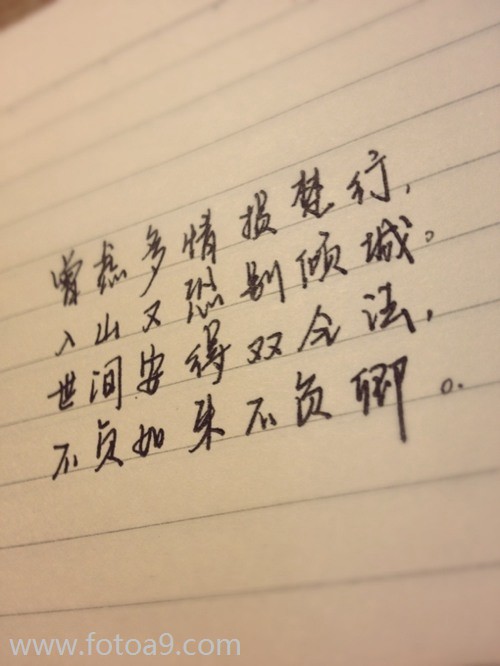 曾虑多情损梵行,
入山又恐别倾城。
世间安得双全法,
不负如来不负卿。
www.fotoa9.com